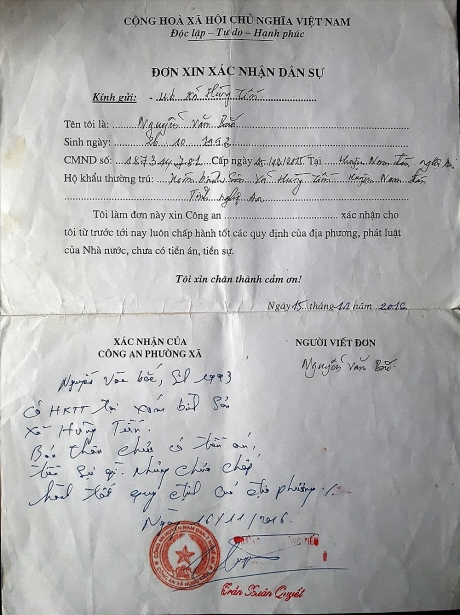 CỘNG HOÀ XÃ HỘI CHỦ NGHĨA VIỆT NAM
Độc lập – Tự do – Hạnh phúc
ĐƠN XIN XÁC NHẬN DÂN SỰ
Kính gửi: Xã Hùng Tiến
Tên tôi là: Nguyễn Văn Bắc
Sinh ngày: 26 10 1993
CMND số: Cấp ngày 15/12/2015 Tại Huyện Nam Đàn, Nghệ An
Hộ khẩu thường trú: Xóm bình Sơn Xã Hùng Tiến Huyện Nam Đàn
Tỉnh Nghệ An
Tôi làm đơn này xin Công an xác nhận cho
tôi từ trước tới nay luôn chấp hành tốt các quy định của địa phương, phát luật
của Nhà nước, chưa có tiền án, tiền sự.
Tôi xin chân thành cảm ơn!
Ngày 15 tháng 11 năm 2016
XÁC NHẬN CỦA
CÔNG AN PHƯỜNG XÃ
NGƯỜI VIẾT ĐƠN
Nguyễn Văn Bắc
Nguyễn Văn bắc, S1 1993
Có HKTT tại xóm bình Sơn
Xã Hùng Tiến.
Bản thân chưa có tiền án,
tiền sự gì. chấp
hành tốt quy định của địa phương ./.
Ngày 16/11/2016.
Trần Xuân Quyết